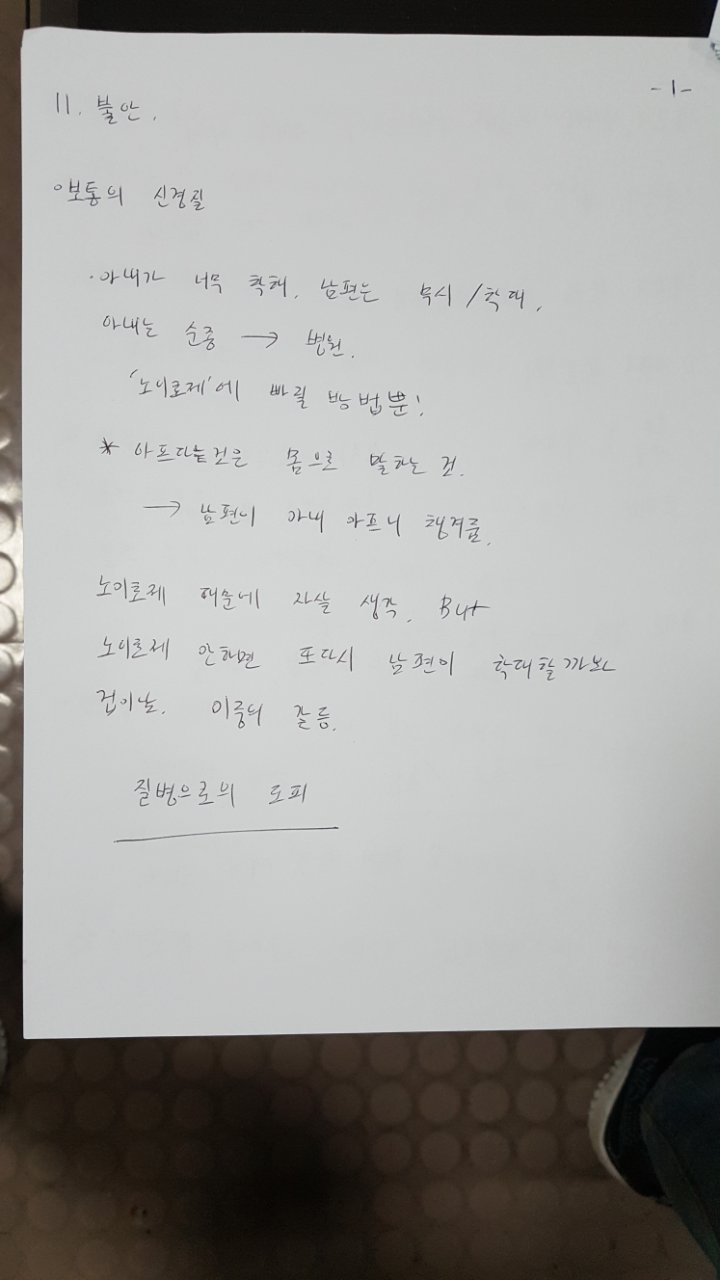 -1-
11. 불안.
보통의 신경질
· 아내가 너무 착해. 남편은 무시/학대.
아내는 순종 → 병원.
'노이로제'에 빠질 방법뿐!
* 아프다는것은 몸으로 말하는 것.
→ 남편이 아내 아프니 챙겨줌.
노이로제 때문에 자살 생각. But
노이로제 안하면 또다시 남편이 학대할까봐
겁이남. 이중의 갈등.
질병으로의 도피